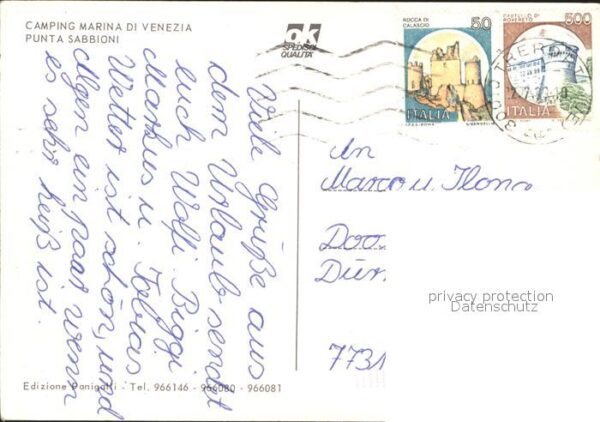 CAMPING MARINA DI VENEZIA
PUNTA SABBIONI
ok
SPEDISCI
QUALITA'
ROCCA DI
CALASCIO
50
ITALIA
CASTELLO DI
ROVERETO
500
ITALIA
Viele Grüße aus
dem Urlaub sendet
euch Wolfi Biggi
Markus u. Tobias
Wetter ist schön, und
es sehr heiß ist.
An
Marco u. Ilona
Doo
Dür
773
privacy protection
Datenschutz
Edizione Panigatti - Tel. 966146 - 966080 - 966081